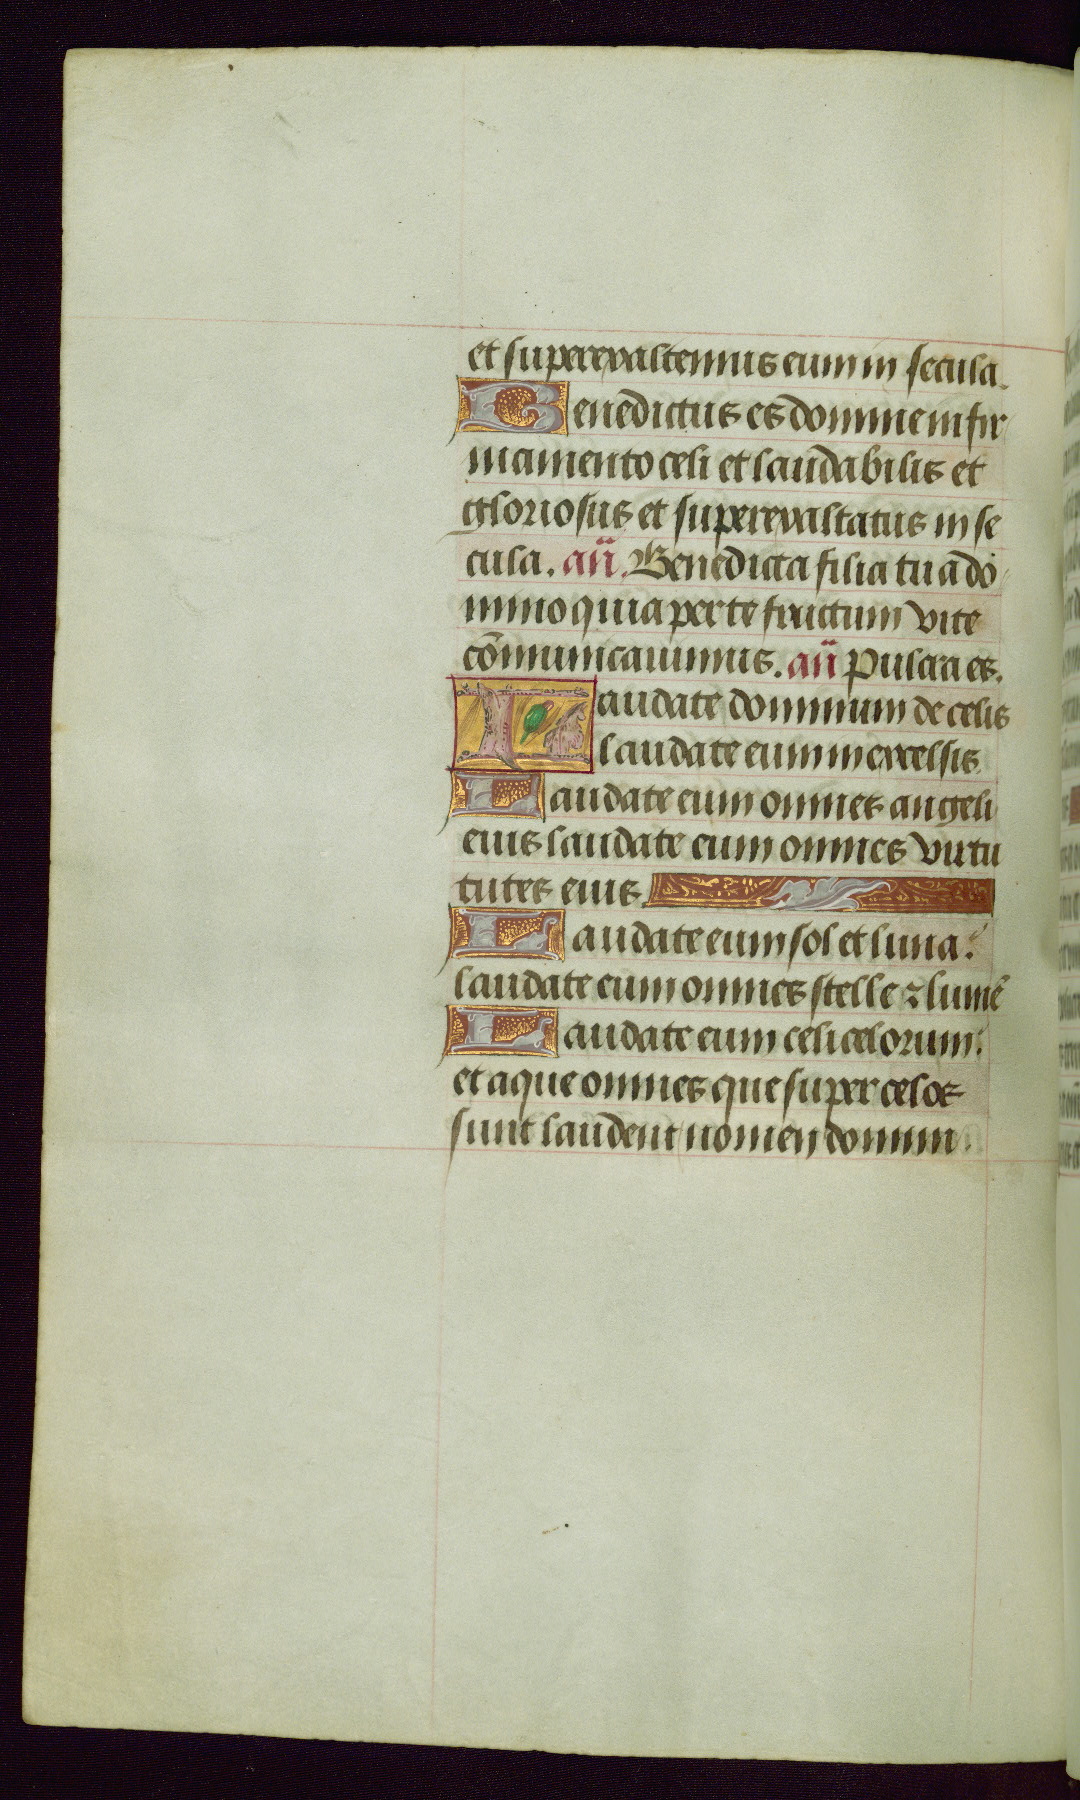 et superexaltemus eum in secula.
Benedictus es domine in fir
mamento celi et laudabilis et
gloriosus et superexaltatus in se
cula. añ. Benedicta filia tu a do
mino quia per te fructum vite
cōmunicauimus. añ Pulcra es.
Laudate dominum de celis
laudate eum in excelsis
Laudate eum omnes angeli
eius laudate eum omnes virtu
tutes eius
Laudate eum sol et luna:
laudate eum omnes stelle ⁊ lumē
Laudate eum celi celorum:
et aque omnes que super celos
sunt laudent nomen domini